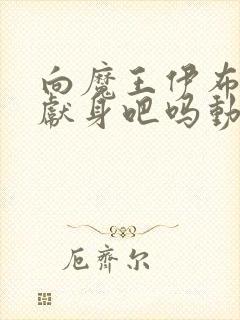 向魔王伊布
献身吧吗動
厄齊尔